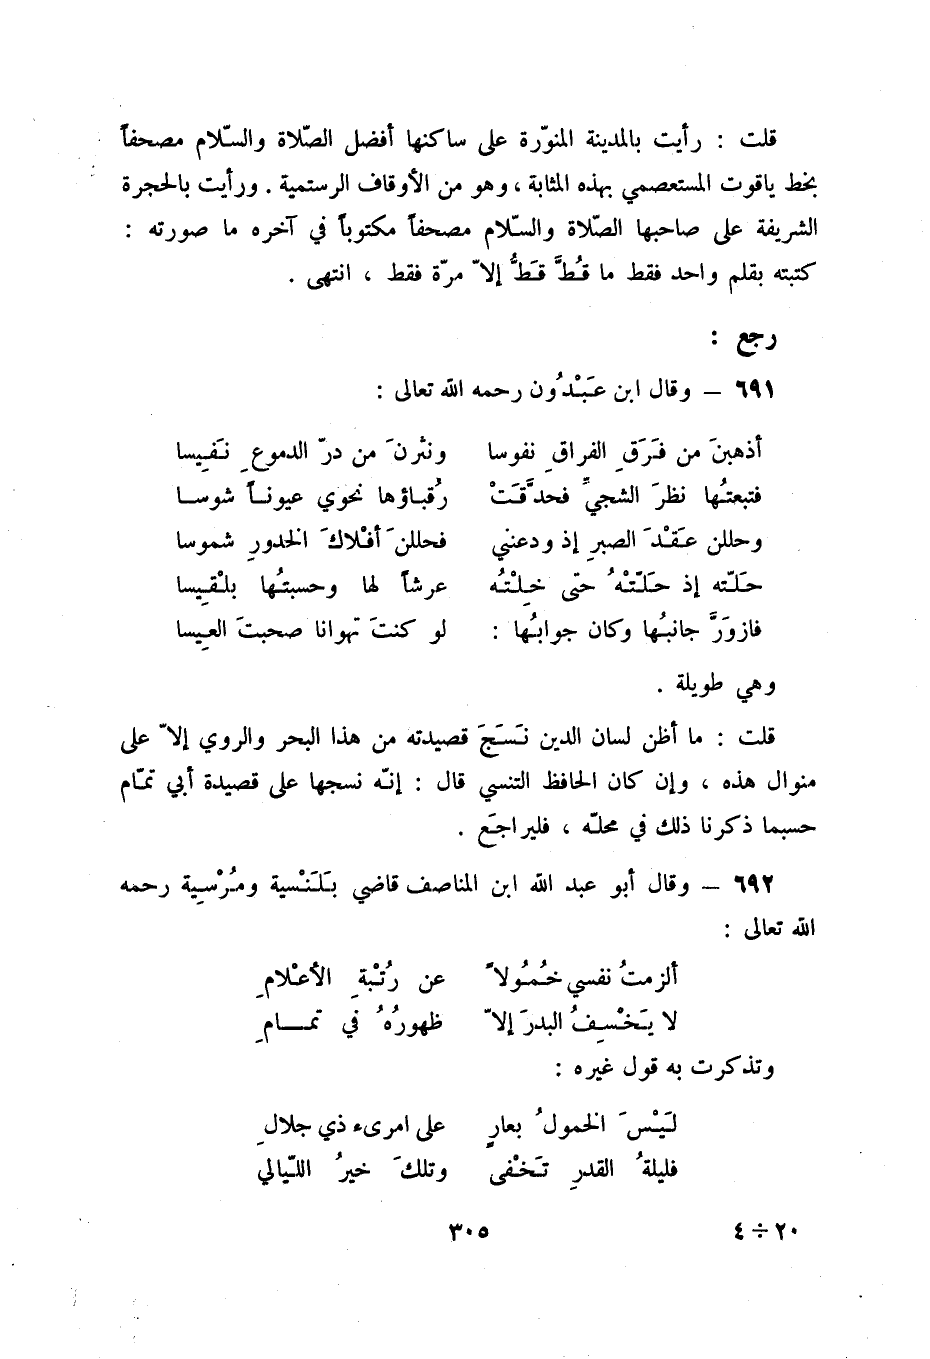 قلت : رأيت بالمدينة المنوّرة على ساكنها أفضل الصّلاة والسّلام مصحفاً
بخط ياقوت المستعصمي بهذه المثابة ، وهو من الأوقاف الرستمية . ورأيت بالحجرة
الشريفة على صاحبها الصّلاة والسّلام مصحفاً مكتوباً في آخره ما صورته :
كتبته بقلم واحد فقط ما قُطَّ قَطُّ إلاّ مرّة فقط ، انتهى .
رجع :
٦٩١ – وقال ابن عَبْدُون رحمه الله تعالى :
أذهبنَ من فَرَقِ الفراقِ نفوسا ونثرنَ من درّ الدموعِ نَفِيسا
فتبعتُها نظرَ الشجيِّ فحدَّقَتْ رُقباؤها نحوي عيوناً شوسا
وحللن عَقْدَ الصبرِ إذ ودعنني فحللنَ أفْلاكَ الخدورِ شموسا
حَلَتّه إذ حَلَتّهْ حتّى خِلْتُه عرشاً لها وحسبتُها بلقِيسا
فازورَّ جانبُها وكان جوابُها : لو كنتَ تهوانا صحبتَ العِيسا
وهي طويلة .
قلت : ما أظن لسان الدين نَسَجَ قصيدته من هذا البحر والروي إلاّ على
منوال هذه ، وإن كان الحافظ التنسي قال : إنّه نسجها على قصيدة أبي تمّام
حسبما ذكرنا ذلك في محلّه ، فليراجَع .
٦٩٢ – وقال أبو عبد الله ابن المناصف قاضي بَلَنْسِية ومُرْسِية رحمه
الله تعالى :
ألزمتُ نفسي خُمُولاً عن رُتْبةِ الأعْلامِ
لا يَخْسِفُ البدرَ إلاّ ظهورُهُ في تمامِ
وتذكرت به قول غيره :
لَيْسَ الخمولُ بعارٍ على امرىء ذي جلالِ
فليلةُ القدرِ تَخْفى وتلكَ خيرُ اللّيالي
٢٠ ÷ ٤
٣٠٥